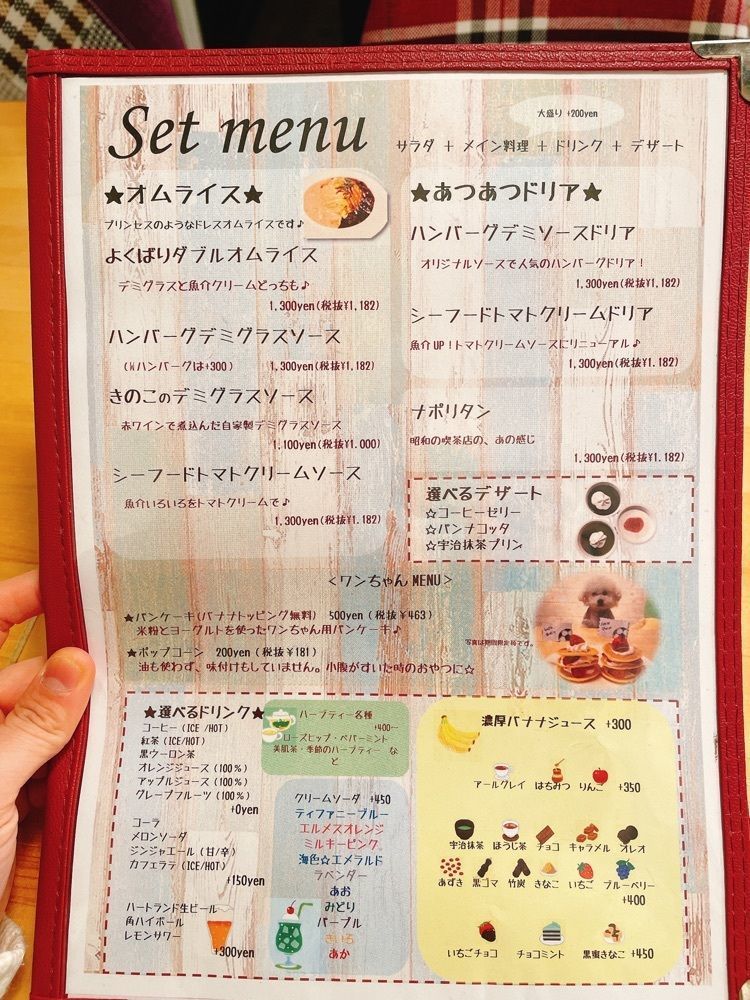 Set menu
大盛り +200yen
サラダ + メイン料理 + ドリンク + デザート
★オムライス★
プリンセスのようなドレスオムライスです♪
よくばりダブルオムライス
デミグラスと魚介クリームどっちも♪
1,300yen(税抜¥1,182)
ハンバーグデミグラスソース
(Wハンバーグは+300) 1,300yen(税抜¥1,182)
きのこのデミグラスソース
赤ワインで煮込んだ自家製デミグラスソース
1,100yen(税抜¥1.000)
シーフードトマトクリームソース
魚介いろいろをトマトクリームで♪
1,300yen(税抜¥1,182)
★あつあつドリア★
ハンバーグデミソースドリア
オリジナルソースで人気のハンバーグドリア!
1,300yen(税抜¥1,182)
シーフードトマトクリームドリア
魚介UP!トマトクリームソースにリニューアル♪
1,300yen(税抜¥1,182)
ナポリタン
昭和の喫茶店の、あの感じ
1,300yen(税抜¥1,182)
選べるデザート
☆コーヒーゼリー
☆パンナコッタ
☆宇治抹茶プリン
<ワンちゃんMENU>
★パンケーキ(バナナトッピング無料) 500yen (税抜¥463)
米粉とヨーグルトを使ったワンちゃん用パンケーキ♪
★ポップコーン 200yen(税抜¥181)
油も使わず、味付けもしていません。小腹がすいた時のおやつに☆
★選べるドリンク★
コーヒー(ICE /HOT)
紅茶(ICE/HOT)
黒ウーロン茶
オレンジジュース(100%)
アップルジュース(100%)
グレープフルーツ(100%)
+0yen
コーラ
メロンソーダ
ジンジャエール(甘/辛)
カフェラテ(ICE/HOT)
+150yen
ハートランド生ビール
角ハイボール
レモンサワー
+300yen
ハーブティー各種
+400~
ローズヒップ・ペパーミント
美肌茶・季節のハーブティー な
ど
クリームソーダ +450
ティファニーブルー
エルメスオレンジ
ミルキーピンク
海色☆エメラルド
ラベンダー
あお
みどり
パープル
きいろ
あか
濃厚バナナジュース +300
アールグレイ はちみつ りんご +350
宇治抹茶 ほうじ茶 チョコ キャラメル オレオ
あずき 黒ゴマ 竹炭 きなこ いちご ブルーベリー
+400
いちごチョコ チョコミント 黒蜜きなこ +450